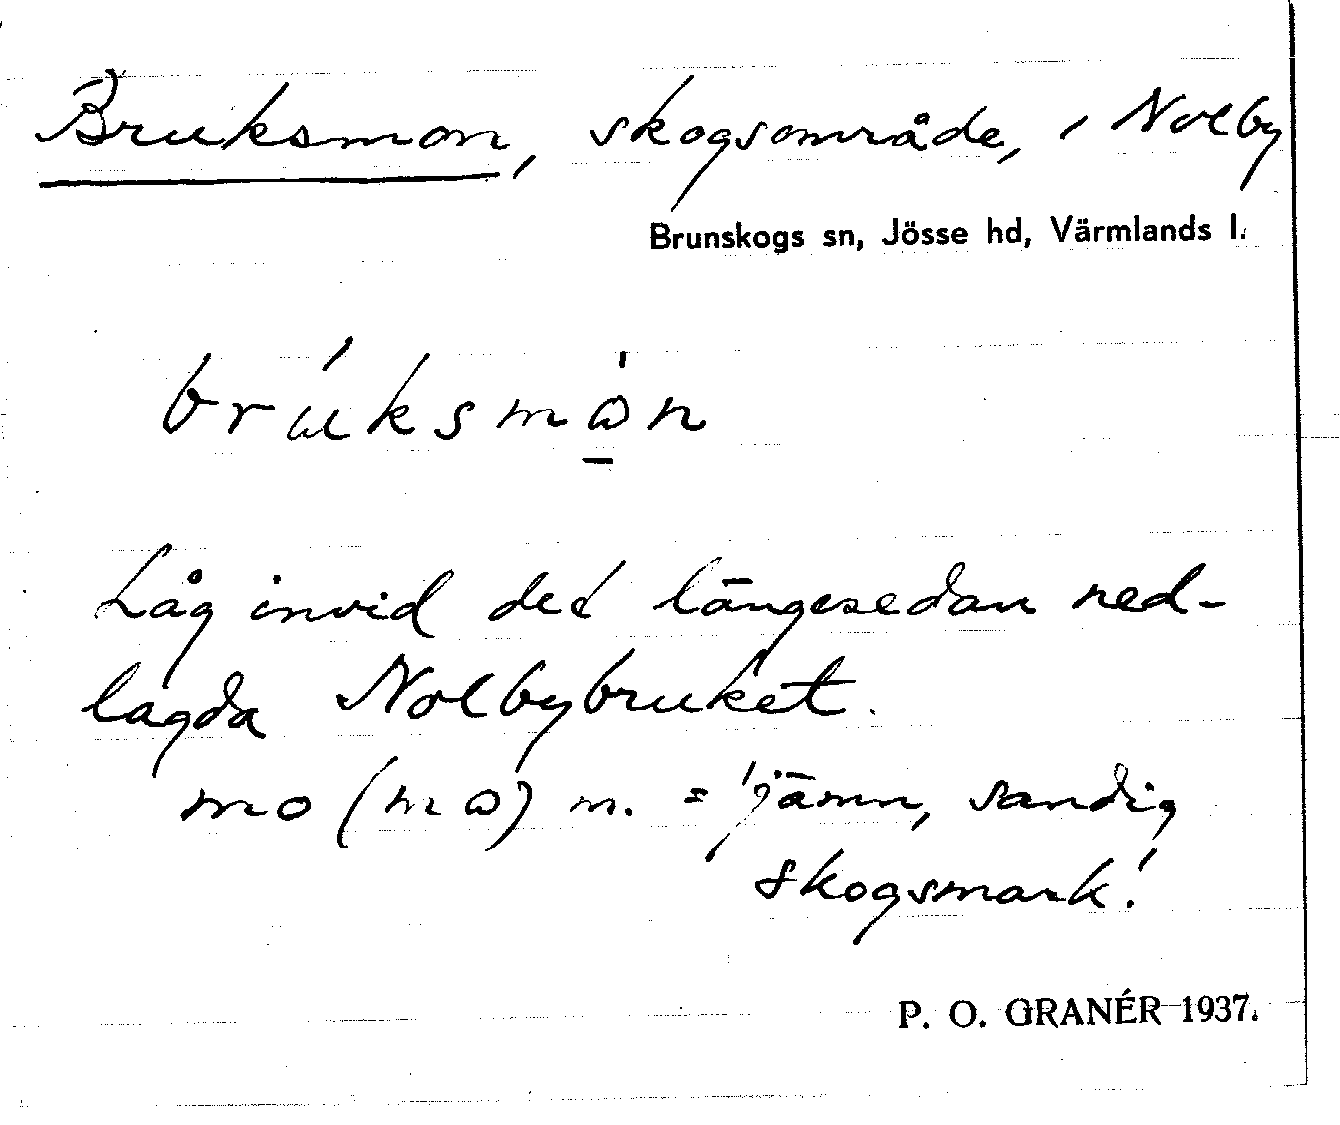 Bruksmon, skogsområde, i Nolby
Brunskogs sn, Jösse hd, Värmlands l.
brúksmòn
Låg invid det längesedan ned-
lagda Nolbybruket.
mo (mɷ) m. = 'jämn, sandig
skogsmark.'
P. O. GRANÉR 1937.